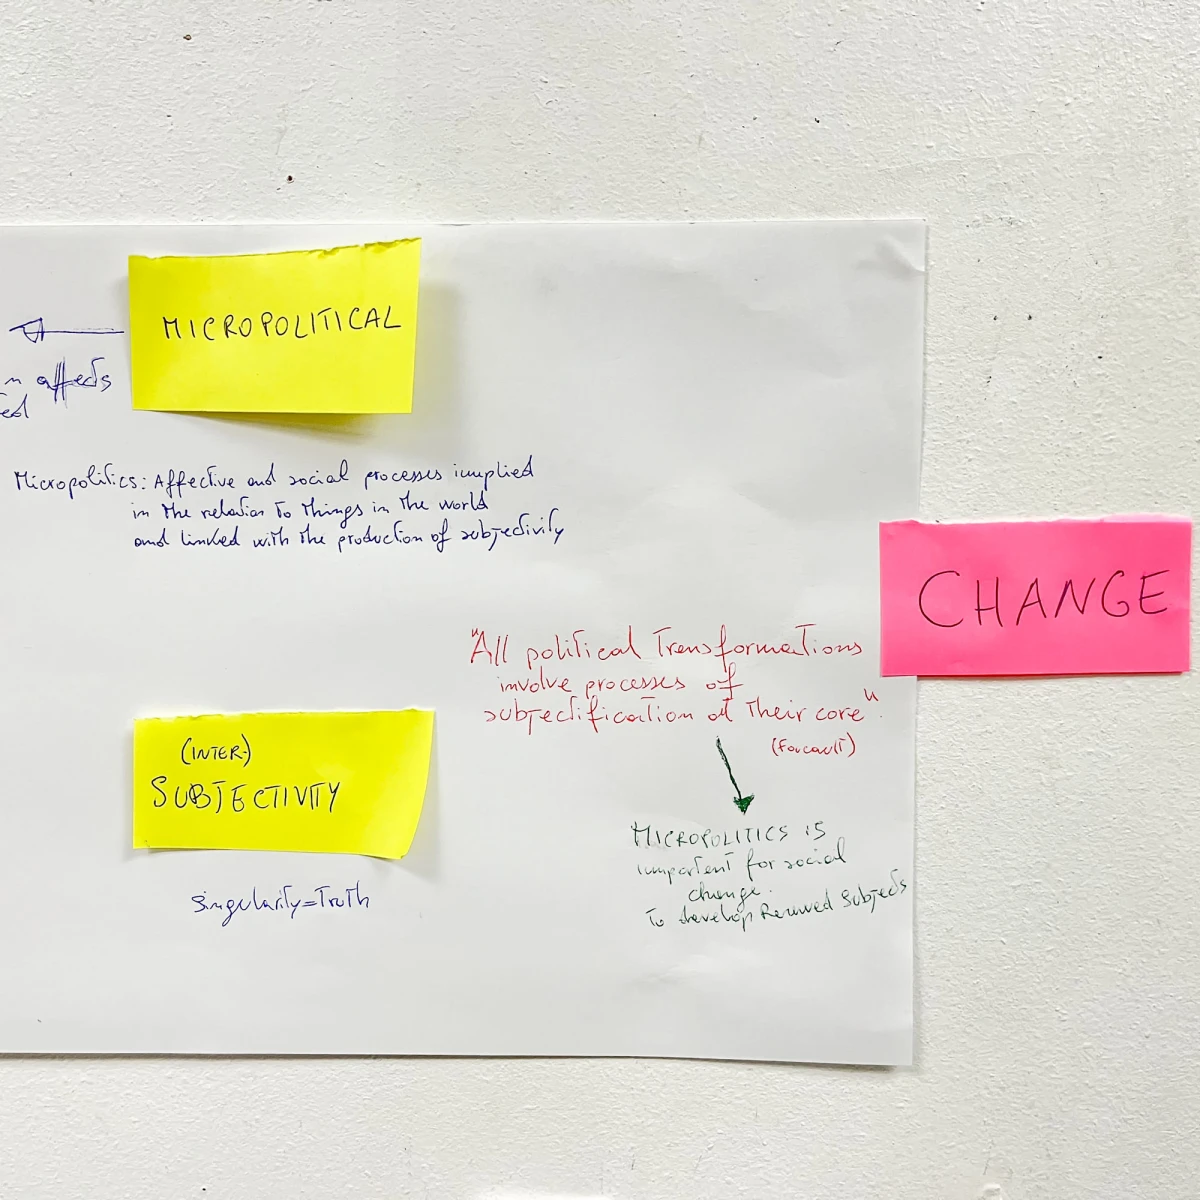 MICROPOLITICAL
affects
Micropolitics: Affective and social processes implied
in the relation to things in the world
and linked with the production of subjectivity
CHANGE
"All political transformations
involve processes of
subjectification at their core".
(Foucault)
(INTER-)
SUBJECTIVITY
singularity=Truth
MICROPOLITICS is
important for social
change.
To develop Renewed Subjects